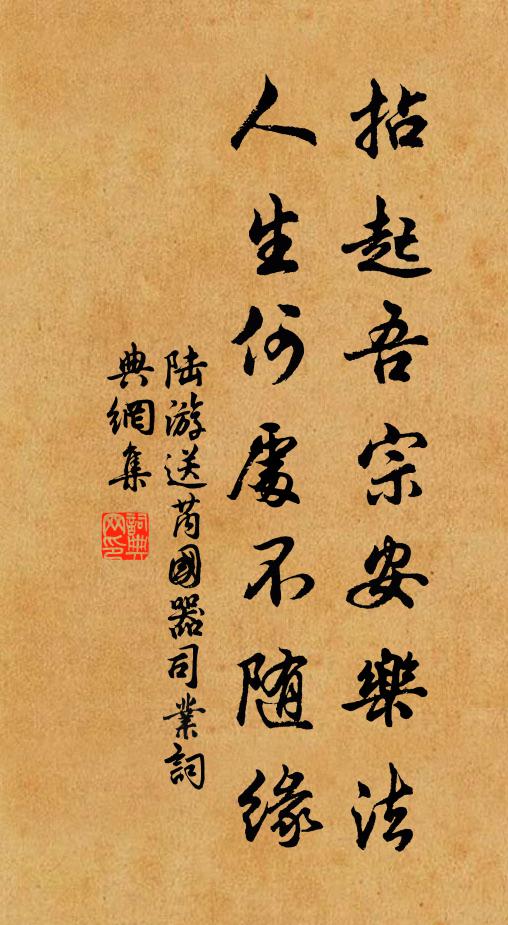 拈起吾宗安樂法
人生何處不随缘
陆游送芮國器司業詞
典網集
詞典
网印